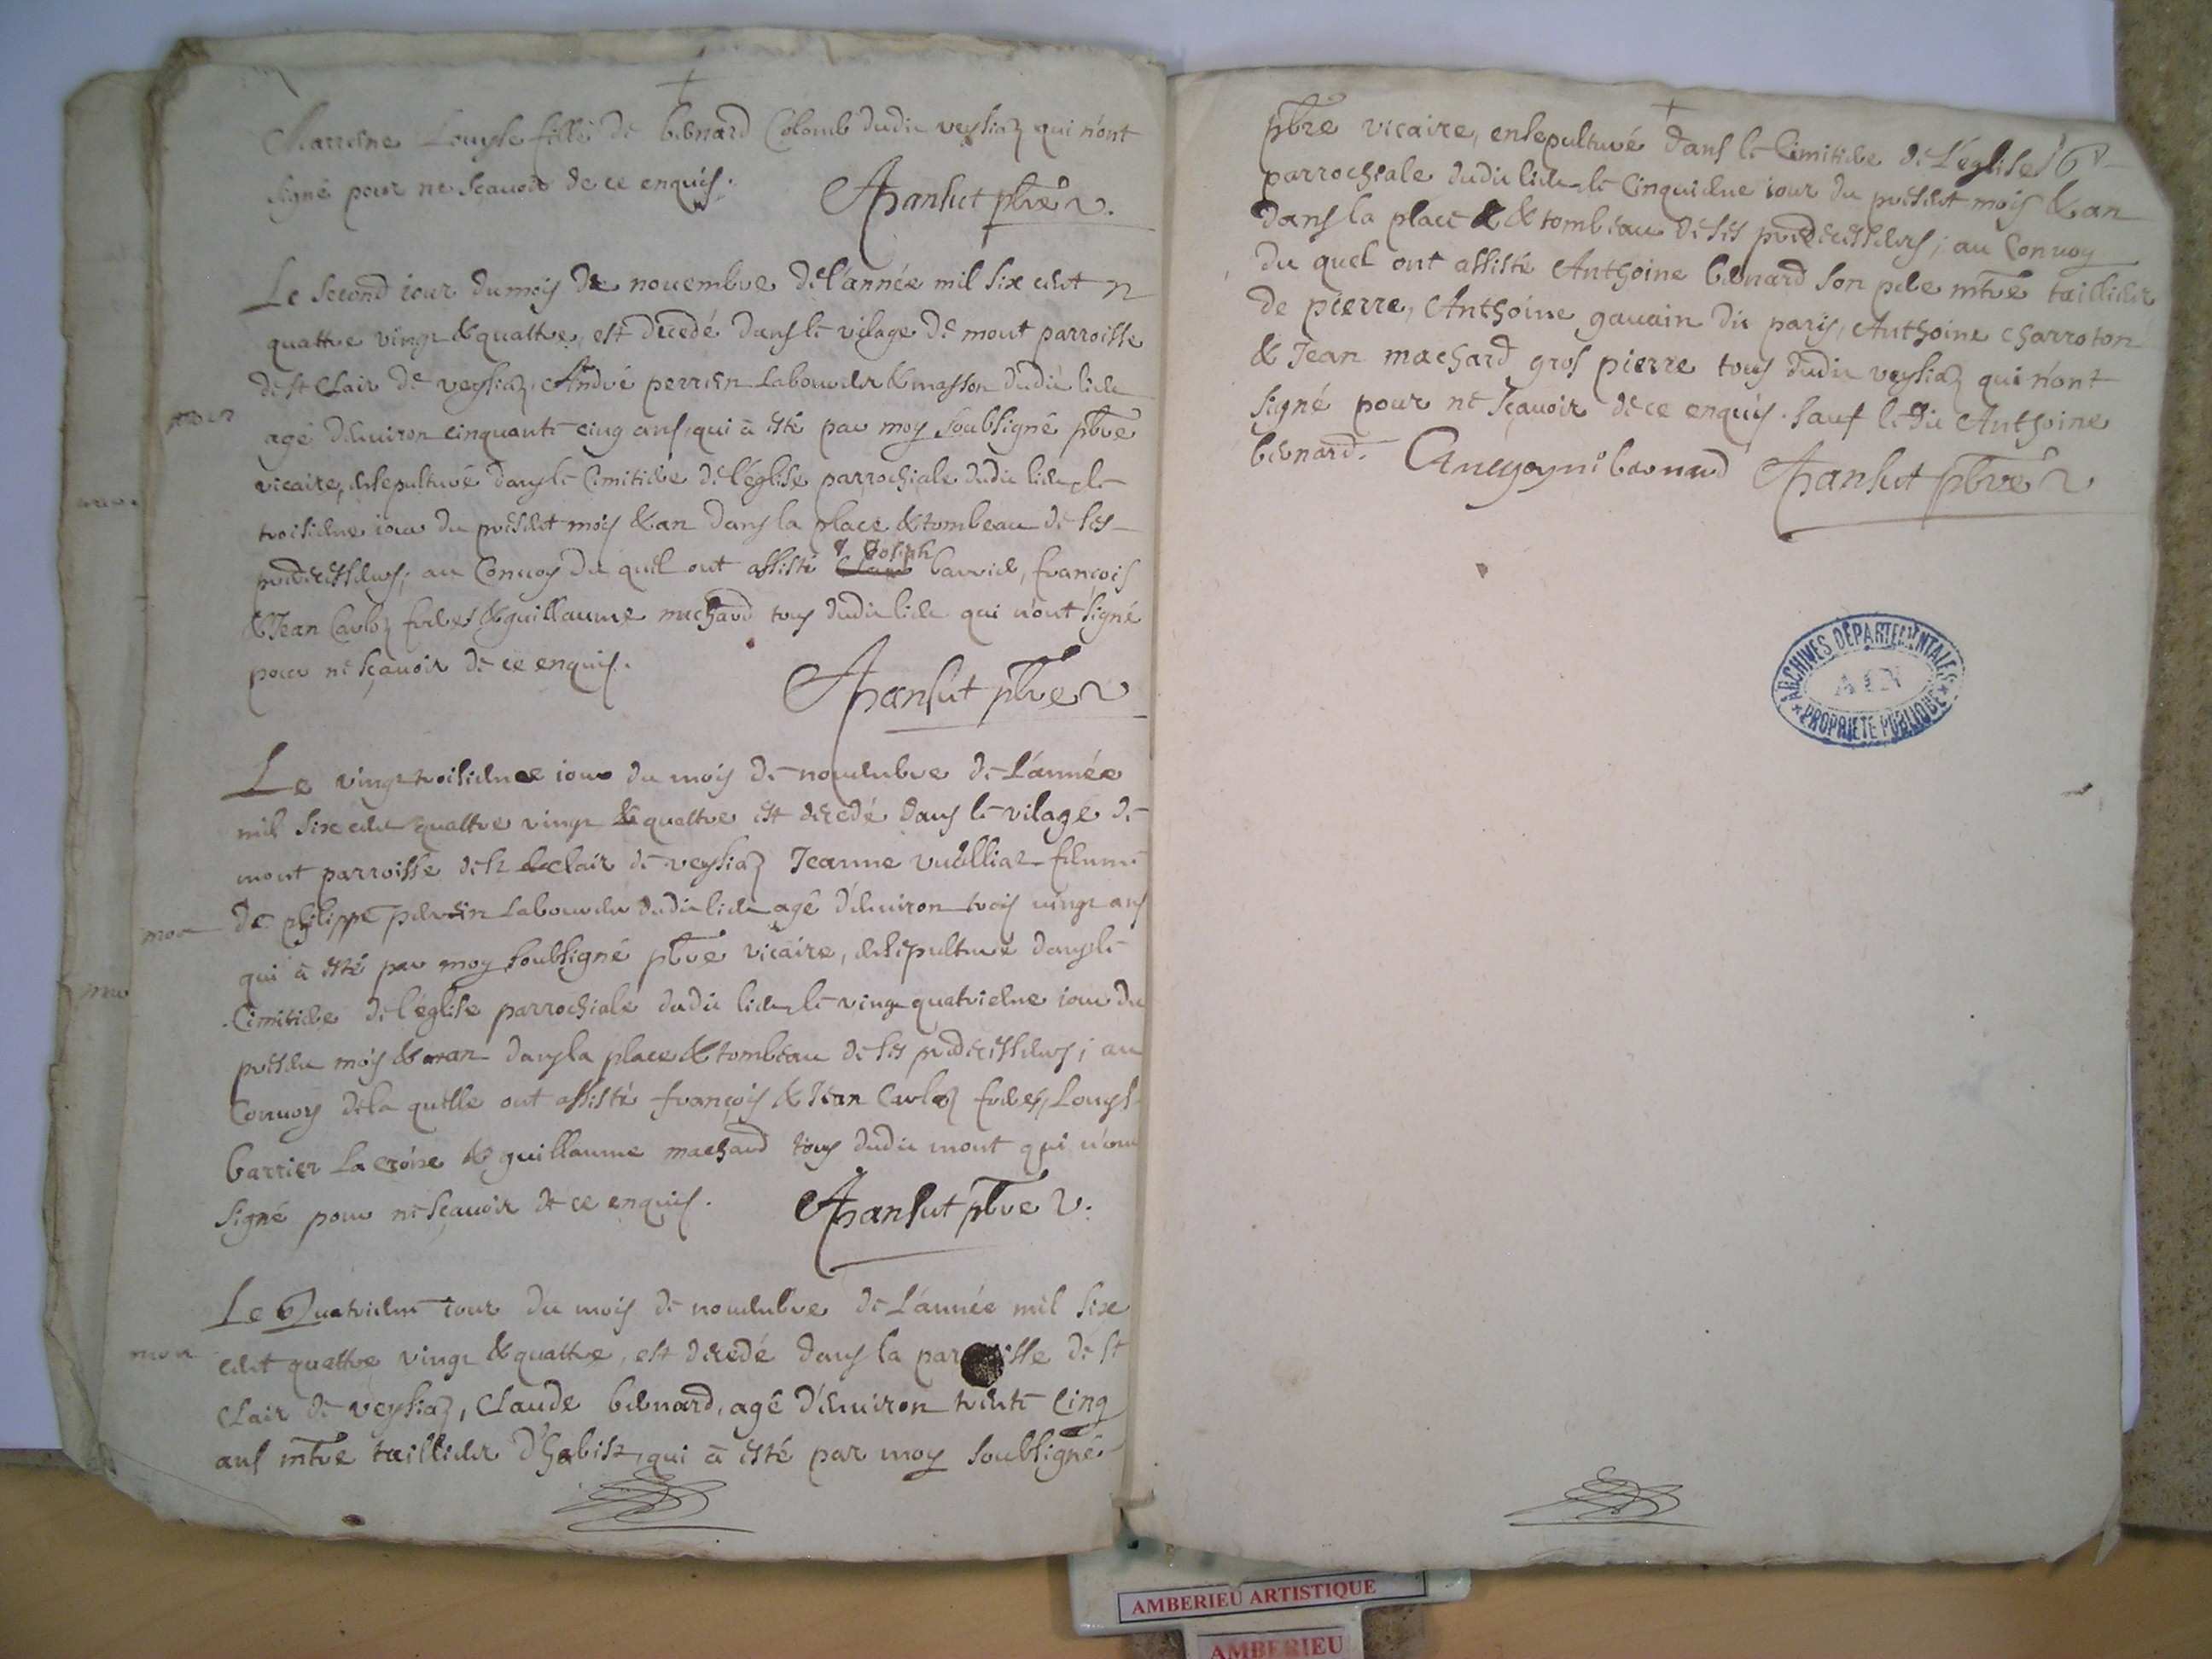 Marreine Louyse fille de bernard Colomb dudit veysiaz qui n'ont
signé pour ne scavoir de ce enquis.
Hansut pbre v.
Le second iour du mois de novembre de l'année mil six cent
quattre vingt & quattre, est decedé dans le vilage de mont parroisse
de st Clair de veysiaz, André perrien Laboureur & masson dudit lieu
agé d'environ cinquante cinq ans, qui à esté par moy soubsigné pbre
vicaire, ensepulturé dans le Cimitiere de l'église parrochiale dudit lieu le
troisieme iour du present mois & an dans la place & tombeau de ses
predecesseurs; au Convoy du quel ont assisté Joseph barrier, françois
& Jean Carloz freres & guillaume michard tous dudit lieu qui n'ont signé
pour ne scavoir de ce enquis.
Hansut pbre v
Le vingt troisieme iour du mois de novembre de l'année
mil six cent quattre vingt & quattre est decedé dans le vilage de
mont parroisse de st clair de veysiaz Jeanne vuilliat femme
de philippe perrein Laboureur dudit lieu agé d'environ trois vingt ans
qui à esté par moy soubsigné pbre vicaire, ensepulturé dans le
Cimitiere de l'église parrochiale dudit lieu le vingt quatrieme iour du
present mois & an dans la place & tombeau de ses predecesseurs; au
Convoy de la quelle ont assisté françois & Jean Carloz freres, Louys
barrier La croix & guillaume machard tous dudit mont qui n'ont
signé pour ne scavoir de ce enquis.
Hansut pbre v.
Le Quatrieme iour du mois de novembre de l'année mil six
cent quattre vingt & quattre, est decedé dans la parroisse de st
Clair de veysiaz, Claude bernard, agé d'environ trente cinq
ans mtre taillieur d'habist, qui à esté par moy soubsigné
pbre vicaire, ensepulturé dans le Cimitiere de l'église
parrochiale dudit lieu le cinquieme iour du present mois & an
dans la place & tombeau de ses predecesseurs; au Convoy
du quel ont assisté Anthoine bernard son pere mtre taillieur
de pierre, Anthoine gavain dit paris, Anthoine charroton
& Jean machard gros pierre tous dudit veysiaz qui n'ont
signé pour ne scavoir de ce enquis. sauf le dit Anthoine
bernard.
bernard Hansut pbre v
ARCHIVES DÉPARTEMENTALES
AIN
PROPRIETE PUBLIQUE
AMBERIEU ARTISTIQUE
AMBERIEU